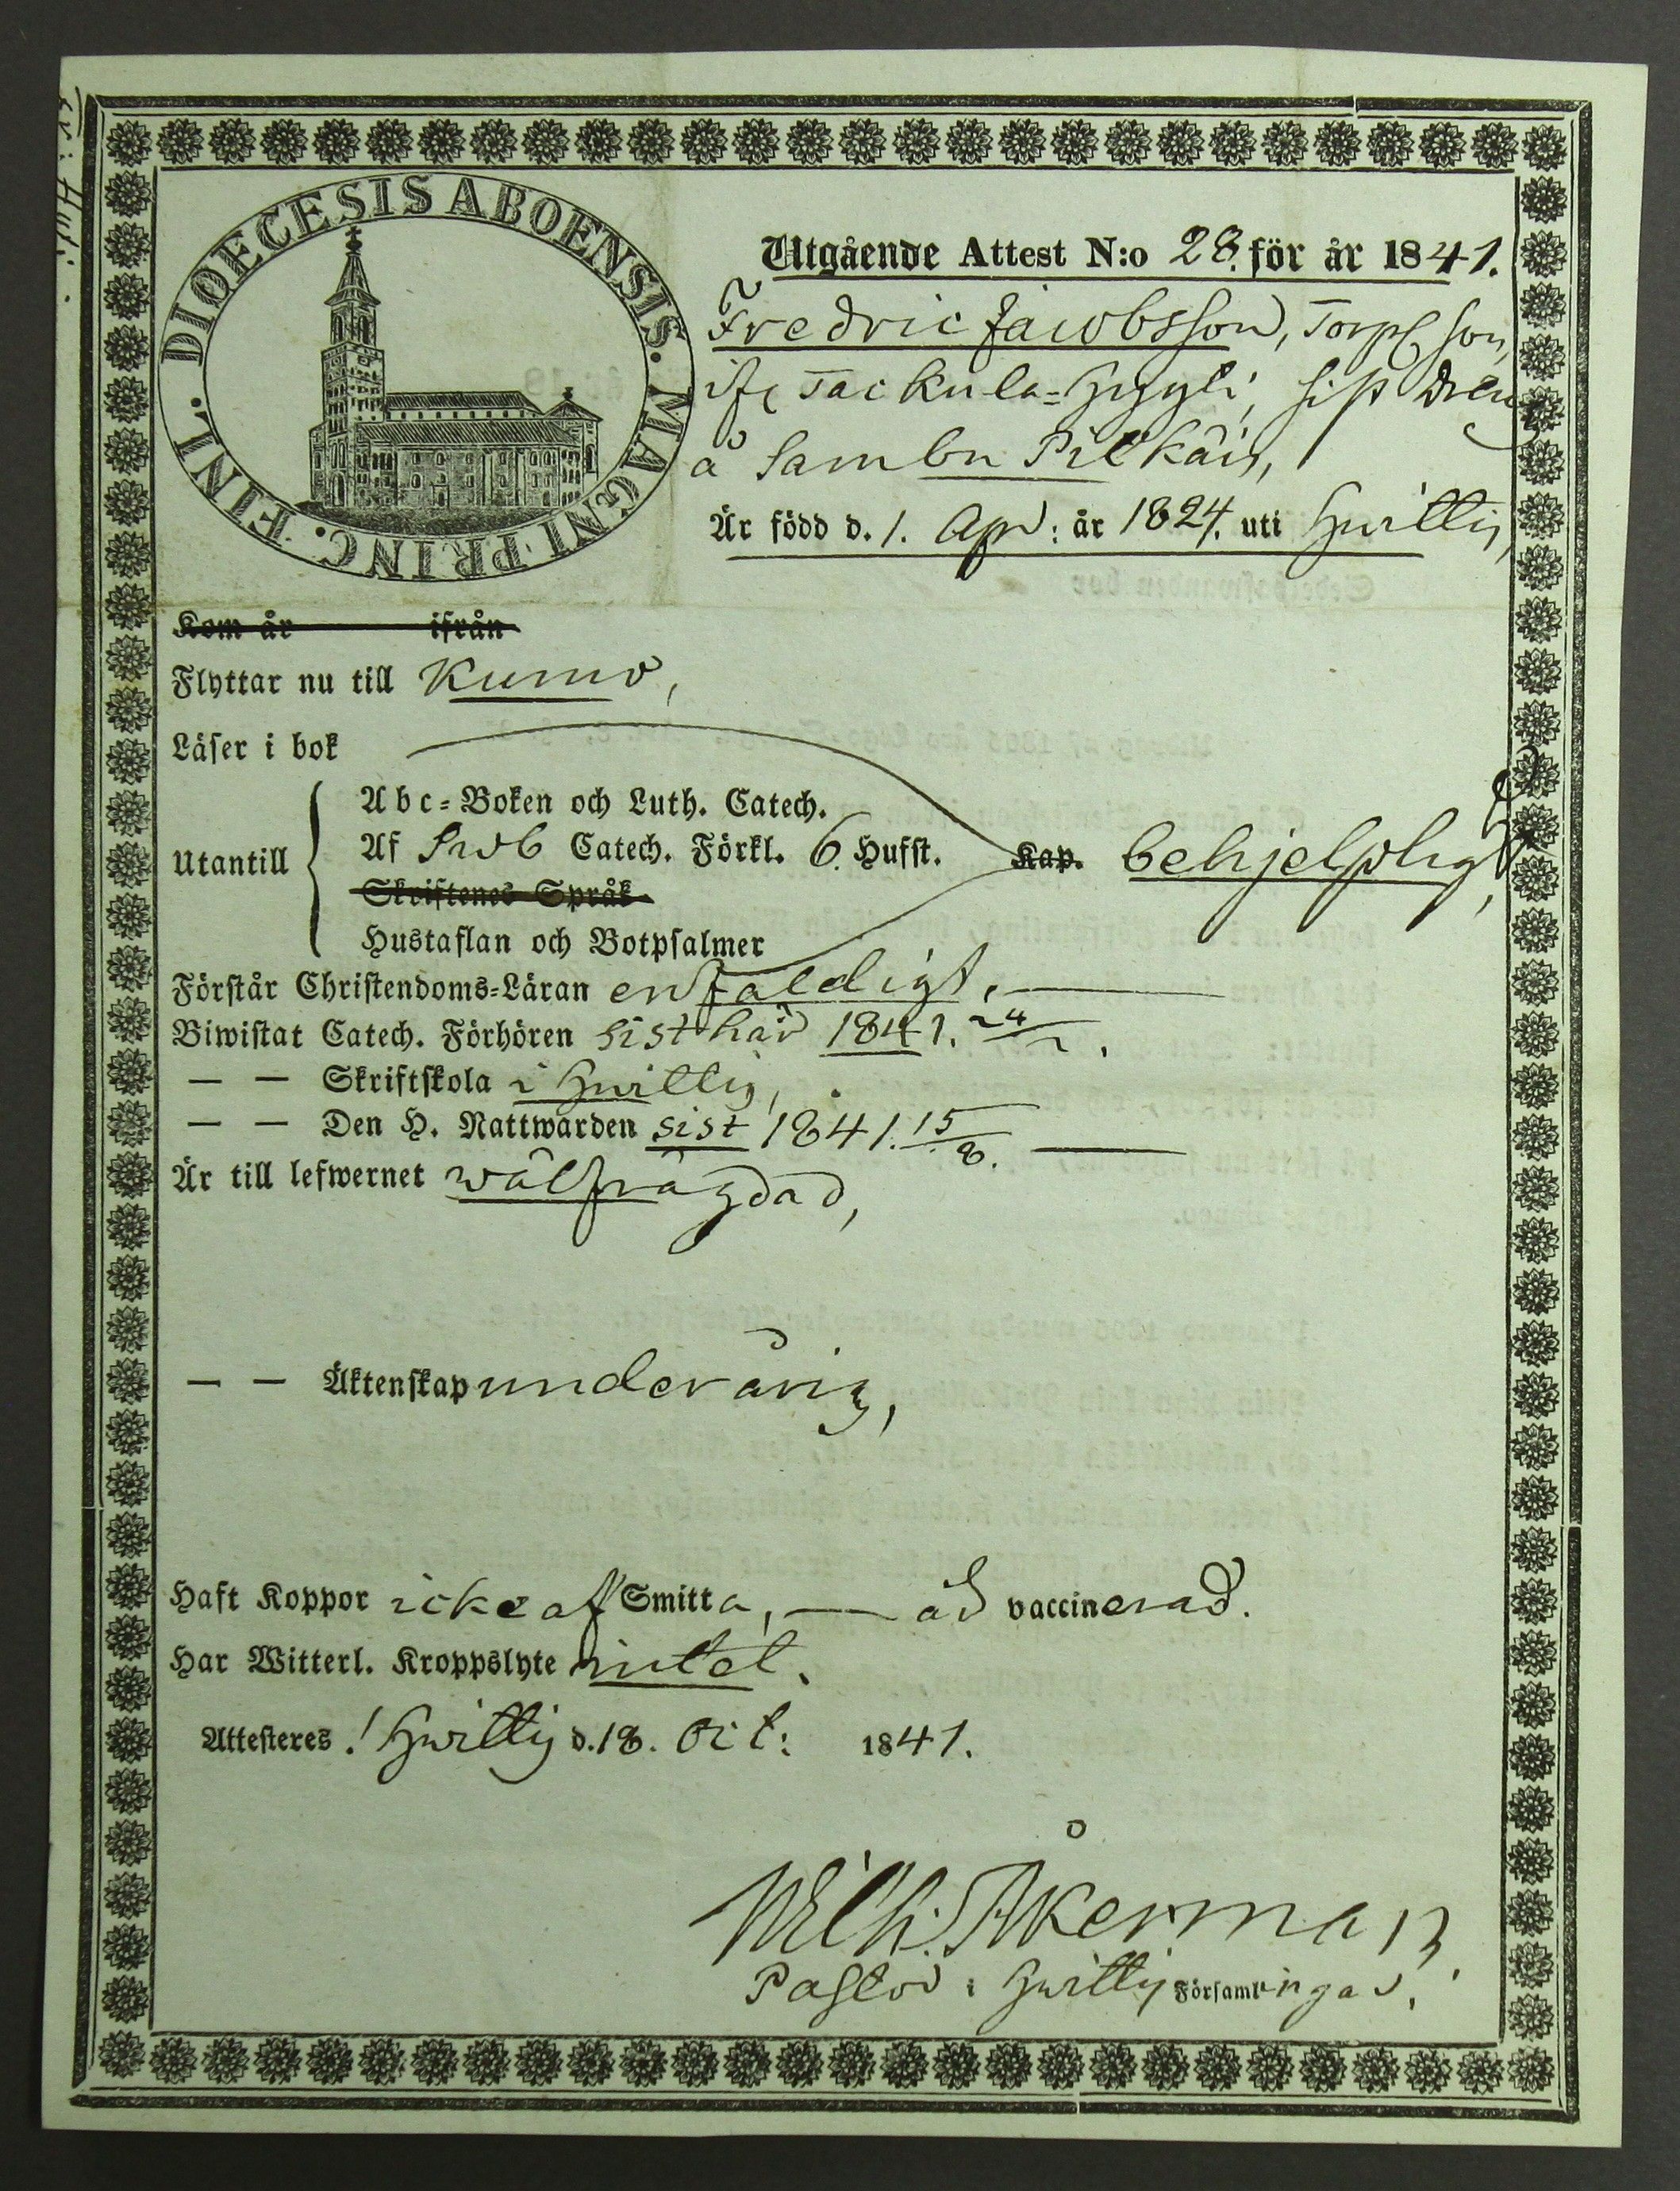 DIOECESIS ABOENSIS. MAGNI PRINC. FINL.
Utgående Attest N:o 28. för år 1841.
Fredric Jacobsson, Torp son,
Tackula=Hyyli, sist dräng
å Sambu Pilkäis,
Är född d. 1. Apr: år 1824. uti Hwittis,
Kom år ifrån
Flyttar nu till Kumo,
Läser i bok
Abc=Boken och Luth. Catech.
Utantill Af Sweb Catech. Förkl. 6. Hufst. Kap. behjelpligt,
Skriftenes Språk
Hustaflan och Botpsalmer
Förstår Christendoms=Läran enfaldigt.
Biwistat Catech. Förhören sist här 1841. 24/2.
— — Skriftskola i Hwittis,
— — Den H. Nattwarden sist 1841. 15/8.
Är till lefwernet wälfrägdad,
— — Äktenskap underårig,
Haft Koppor icke af Smitta, — är vaccinerad.
Har Witterl. Kroppslyte intet.
Attesteres! Hwittis d. 18. Oct: 1841.
Wilh. Åkerman
Pastor i Hwittis Församlingar.